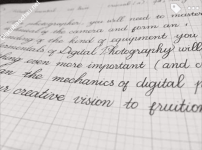 photographer you will need to master
of the camera and form an
of the kind of equipment you
essentials of Digital Photography will
thing even more important (and c
n the mechanics of digital p
r creative vision to fruition